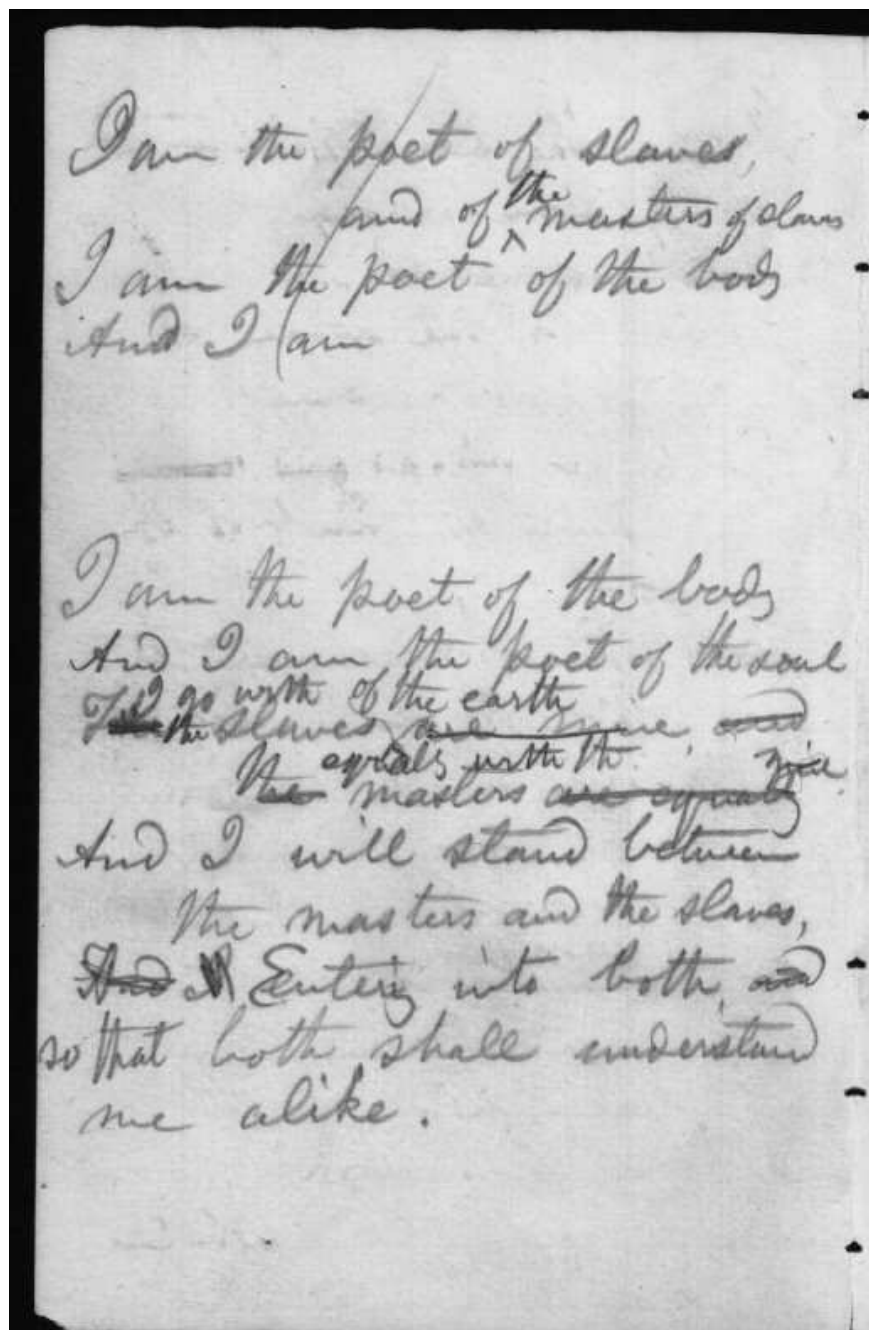 I am the poet of slaves,
and of the masters of slaves
I am the poet of the body
And I am
I am the poet of the body
And I am the poet of the soul
I go with of the earth
The the slaves are mine, and
equally with the
The masters are equally
And I will stand between
the masters and the slaves,
And I Entering into both, and
so that both shall understand
me alike.